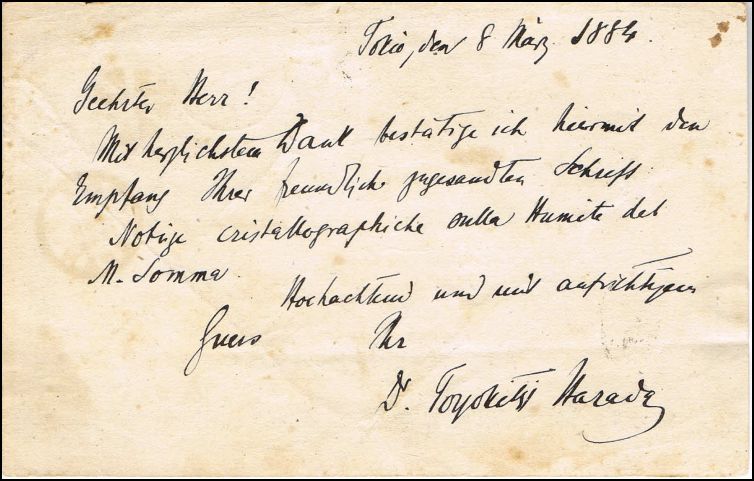 Tokio, den 8 März 1884.
Geehrter Herr!
Mit herzlichstem Dank bestätige ich hiermit den
Empfang Ihrer freundlichst zugesandten Schrift
Notizie cristallographiche sulla Humite del
M. Somma.
Hochachtend und mit aufrichtigem
Gruss Ihr
Dr. Toyokitsi Harada